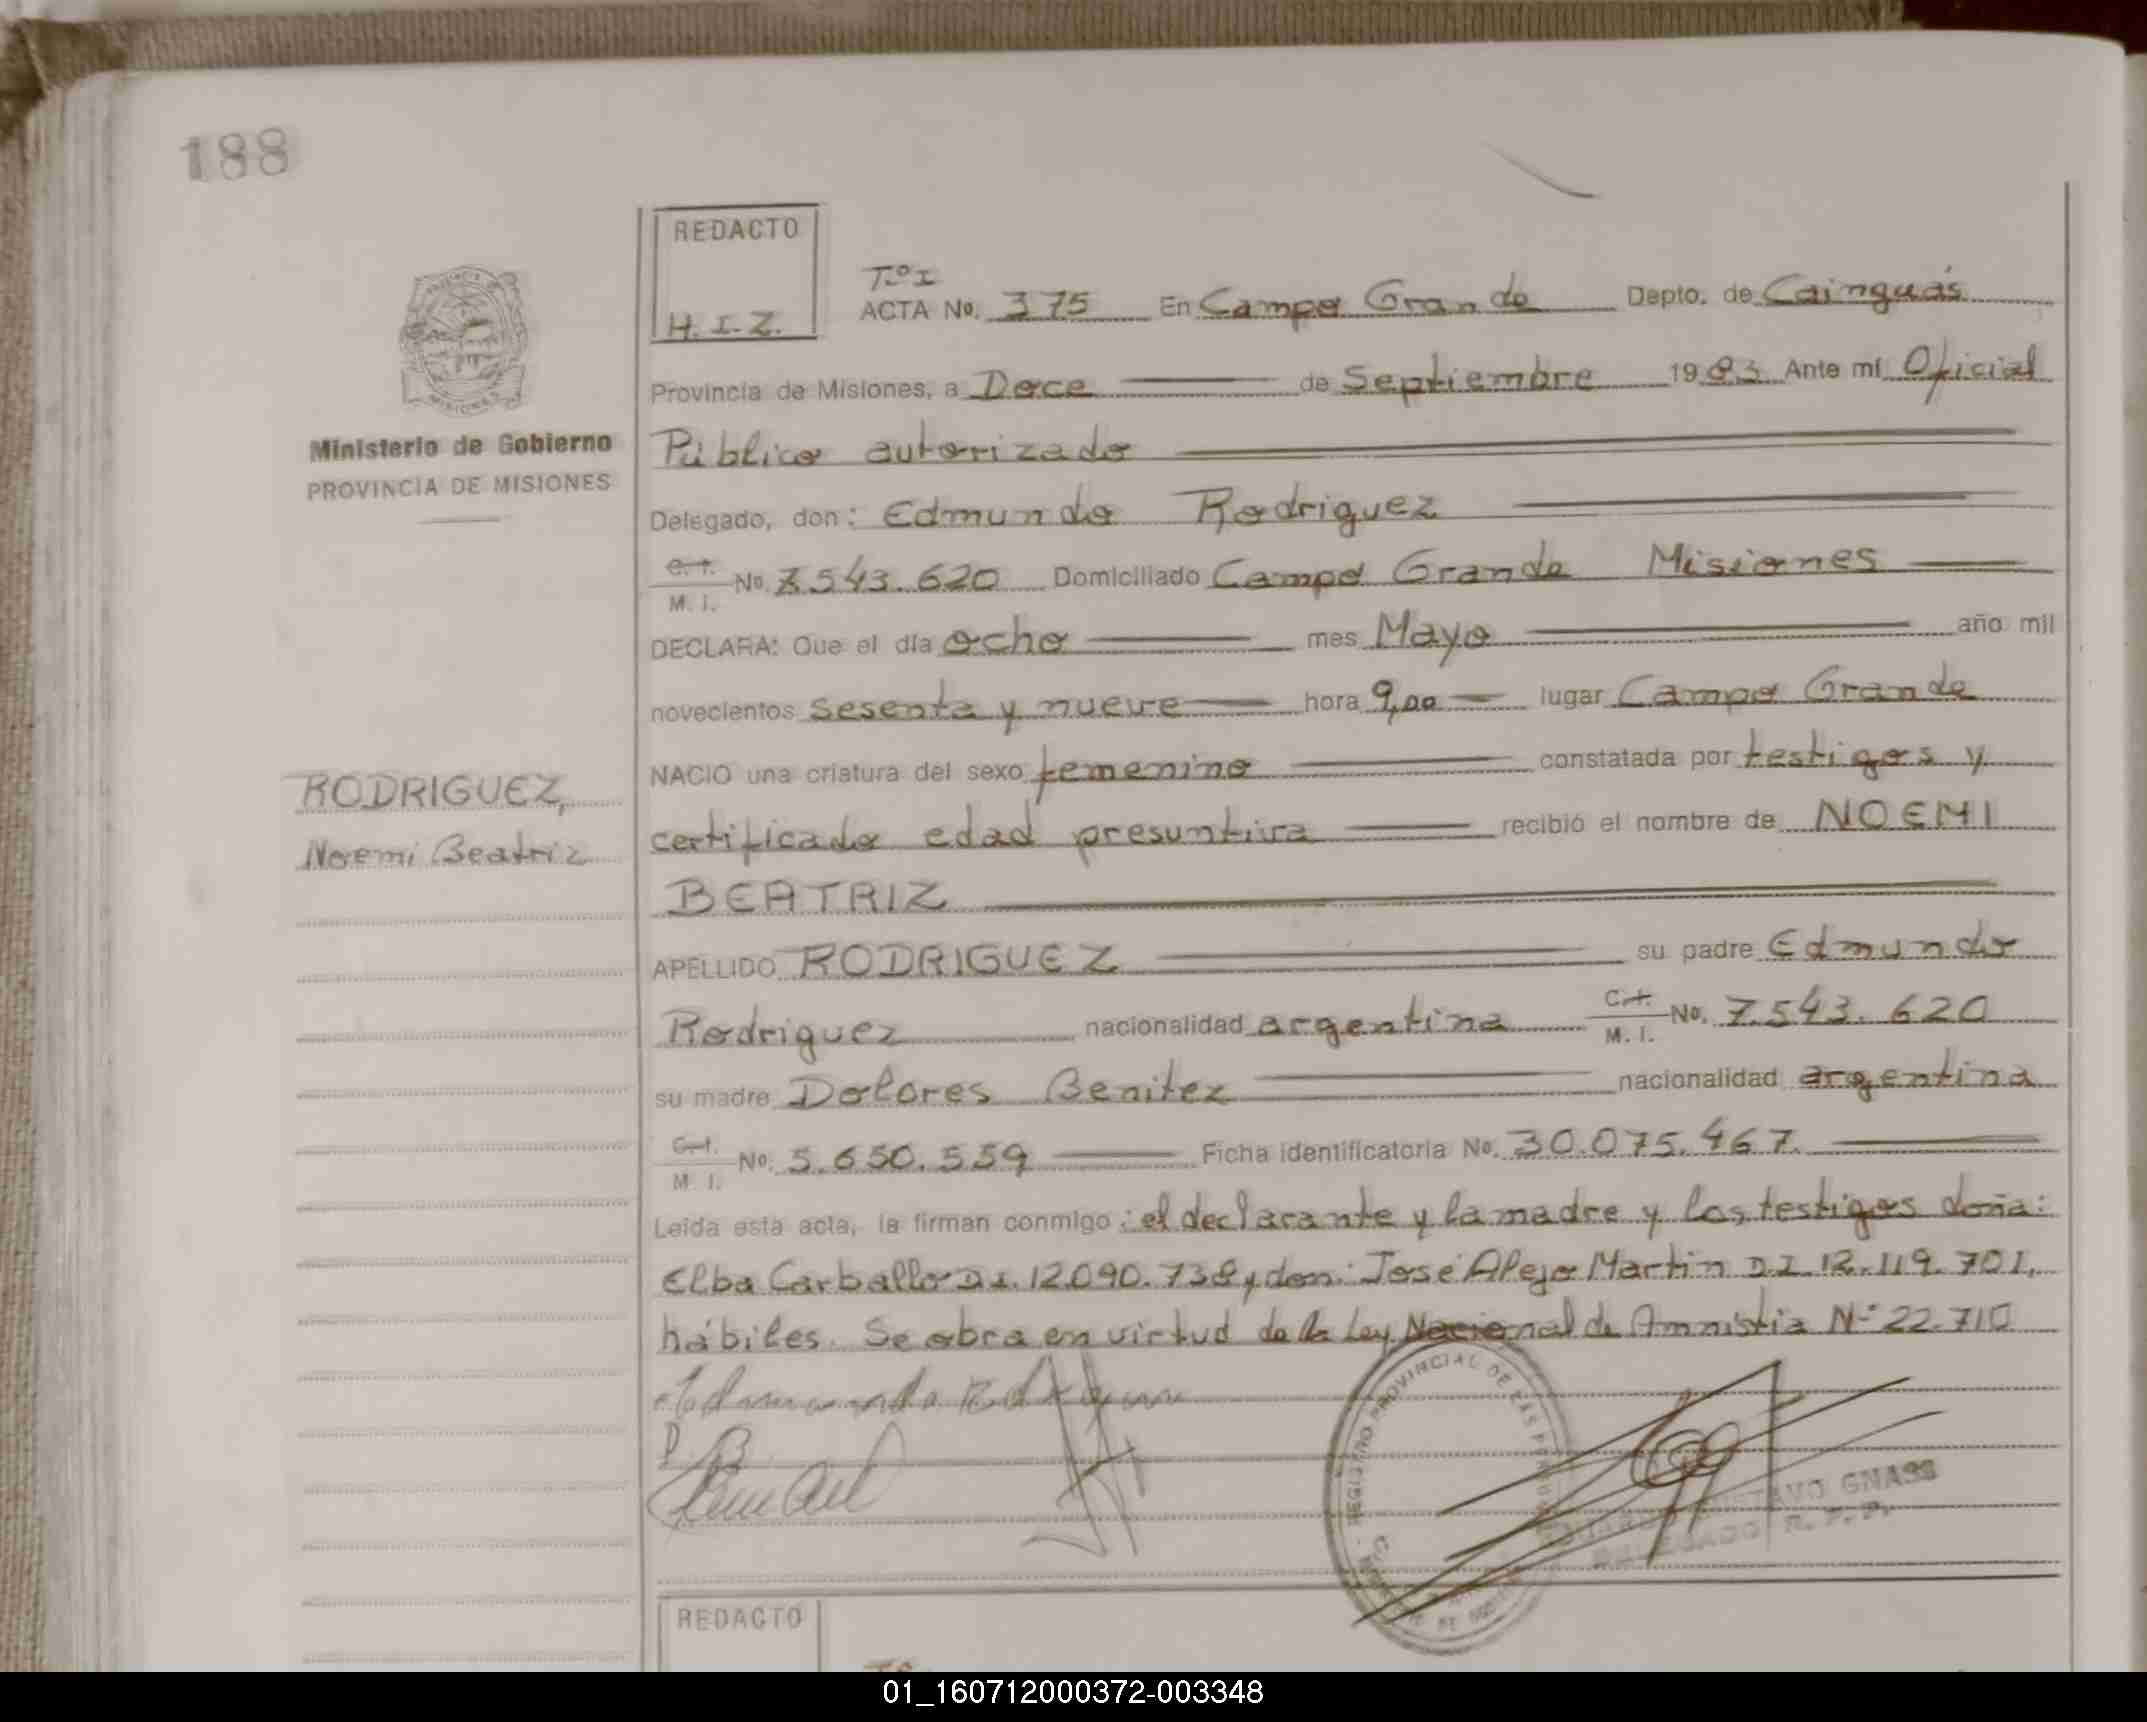 188
REDACTO
H. I. Z.
Tº I
ACTA No. 375 En Campo Grande Depto. de Cainguás
Provincia de Misiones, a Doce de Septiembre 1983 Ante mí Oficial
Público autorizado
Ministerio de Gobierno
PROVINCIA DE MISIONES
Delegado, don: Edmundo Rodriguez
C. I.
M. I. No. 7.543.620 Domiciliado Campo Grande Misiones
DECLARA: Que el día ocho mes Mayo año mil
novecientos sesenta y nueve hora 9,00 lugar Campo Grande
NACIO una criatura del sexo femenino constatada por testigos y
RODRIGUEZ,
Noemi Beatriz
certificado edad presuntiva recibió el nombre de NOEMI
BEATRIZ
APELLIDO RODRIGUEZ su padre Edmundo
Rodriguez nacionalidad argentina C. I. M. I. No. 7.543.620
su madre Dolores Benitez nacionalidad argentina
C. I. M. I. No. 5.650.559 Ficha identificatoria No. 30.075.467.
Leída esta acta, la firman conmigo: el declarante y la madre y los testigos doña:
Elba Carballo D.I. 12.090.738 y don: José Alejo Martin D.I. 12.119.701,
hábiles. Se obra en virtud de la Ley Nacional de Amnistia Nº 22.710
REGISTRO PROVINCIAL DE LAS
GNASS
DELEGADO R. P. P.
REDACTO
01_160712000372-003348